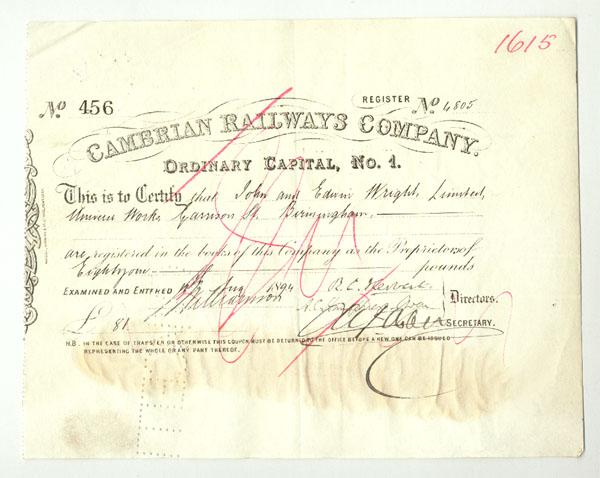 1615
No 456
REGISTER No 4805
CAMBRIAN RAILWAYS COMPANY.
ORDINARY CAPITAL, No. 1.
This is to Certify that John and Edwin Wright Limited,
Universe Works Garrison St. Birmingham,
are registered in the books of this Company as the Proprietors of
Eighty one pounds
EXAMINED AND ENTERED Aug 1894
Directors.
£ 81
SECRETARY.
N.B. IN THE CASE OF TRANSFER OR OTHERWISE THIS COUPON MUST BE RETURNED TO THE OFFICE BEFORE A NEW ONE CAN BE ISSUED
REPRESENTING THE WHOLE OR ANY PART THEREOF.